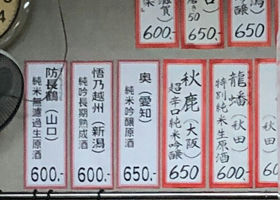 600.-
650
650
龍蟠（秋田）
特別純米生原酒
600.-
秋鹿（大阪）
超辛口純米吟醸
650
奥（愛知）
純米吟醸原酒
650.-
悟乃越州（新潟）
純吟長期熟成酒
600.-
防長鶴（山口）
純米無濾過生原酒
600.-